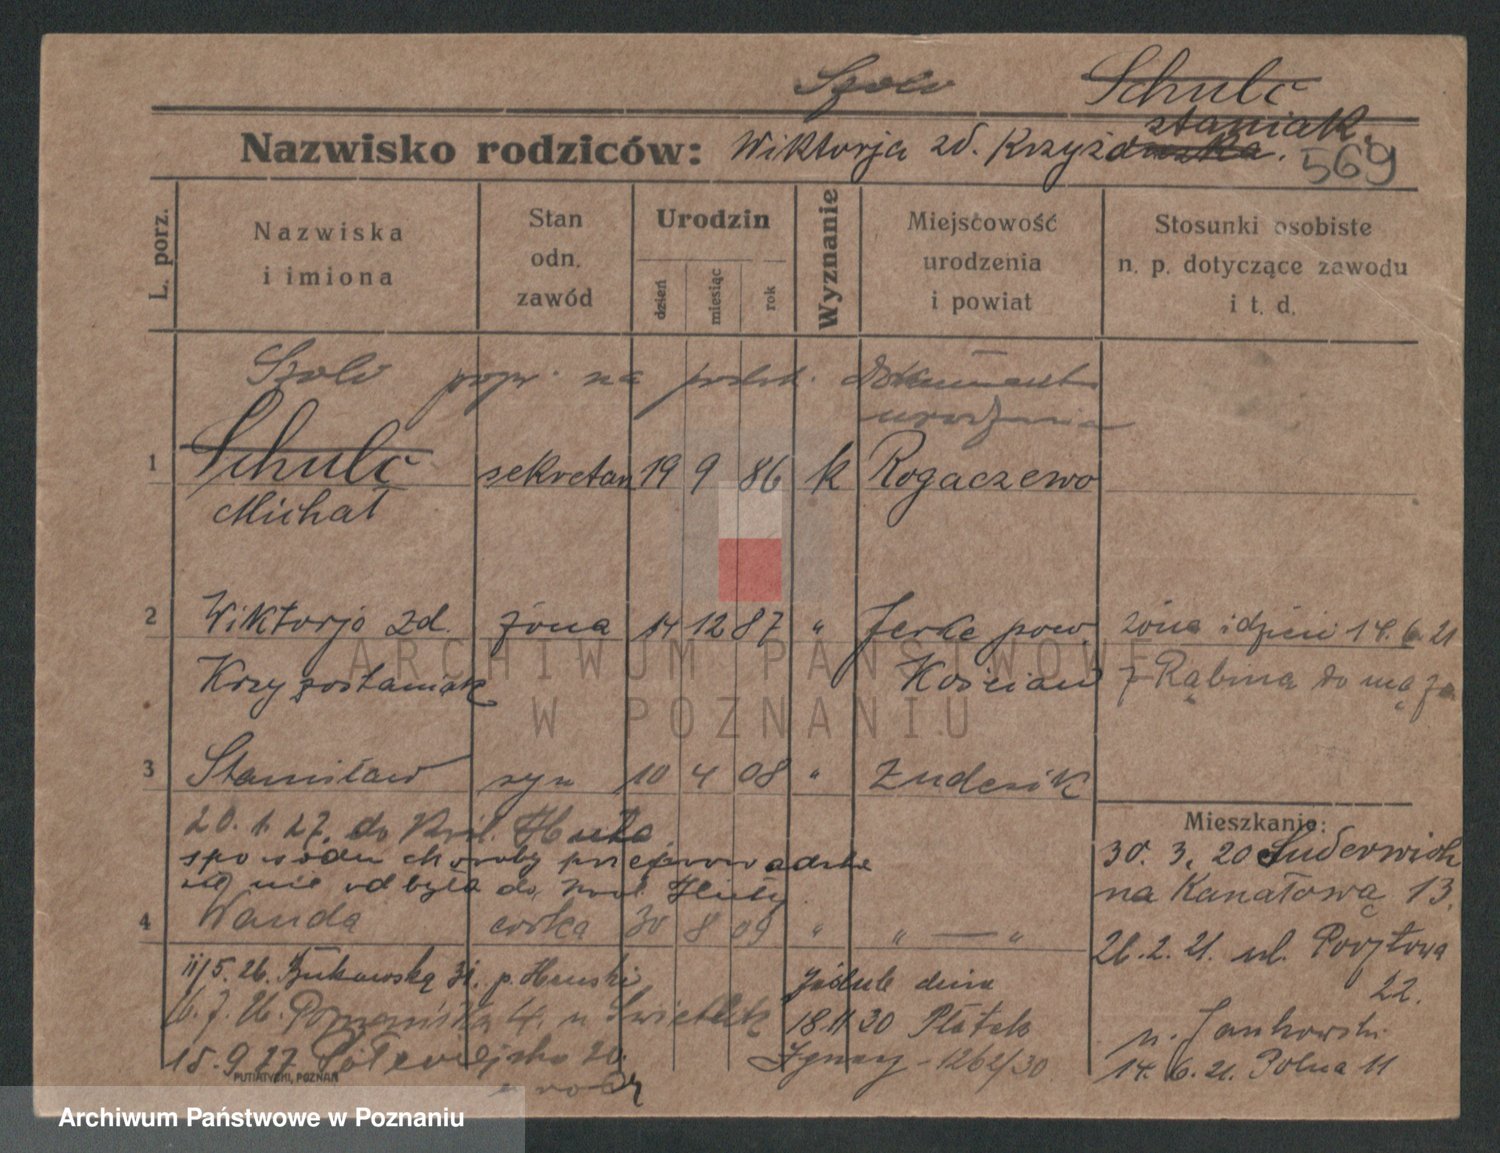 Szolc Schulc
staniak.
Nazwisko rodziców: Wiktorja zd. Krzyża
569
L. porz.
Nazwiska
i imiona
Stan
odn.
zawód
Urodzin
dzień
miesiąc
rok
Wyznanie
Miejscowość
urodzenia
i powiat
Stosunki osobiste
n. p. dotyczące zawodu
i t. d.
Szolc popr. na podst. dokumentu
urodzenia
1 Schulc sekretarz 19 9 86 k Rogaczewo
Michał
2 Wiktorja zd. żona 14 12 87 " Jerke pow. żona i dzieci 14. 6. 21
Krzyżostaniak Kościan z Rąbina do męża
3 Stanisław syn 10 4 08 "
20. 1. 27. do Król. Huta
spowodu choroby przeprowadzka
się nie odbyła do Król. Huty
4 Wanda córka 30 8 09 " " — "
Mieszkanie:
30. 3. 20 Suderwich
na Kanałową 13.
26. 2. 21. ul. Pocztowa
22.
u. Jankowski
14. 6. 21. Polna 11
11/5. 26. Bukowską 31. p.
6. 7. 26. 4. u
15. 9. 27. 20.
18 11 30
Ignacy - 1262/30
PUTIATYCKI, POZNAŃ
ARCHIWUM PAŃSTWOWE
W POZNANIU
Archiwum Państwowe w Poznaniu